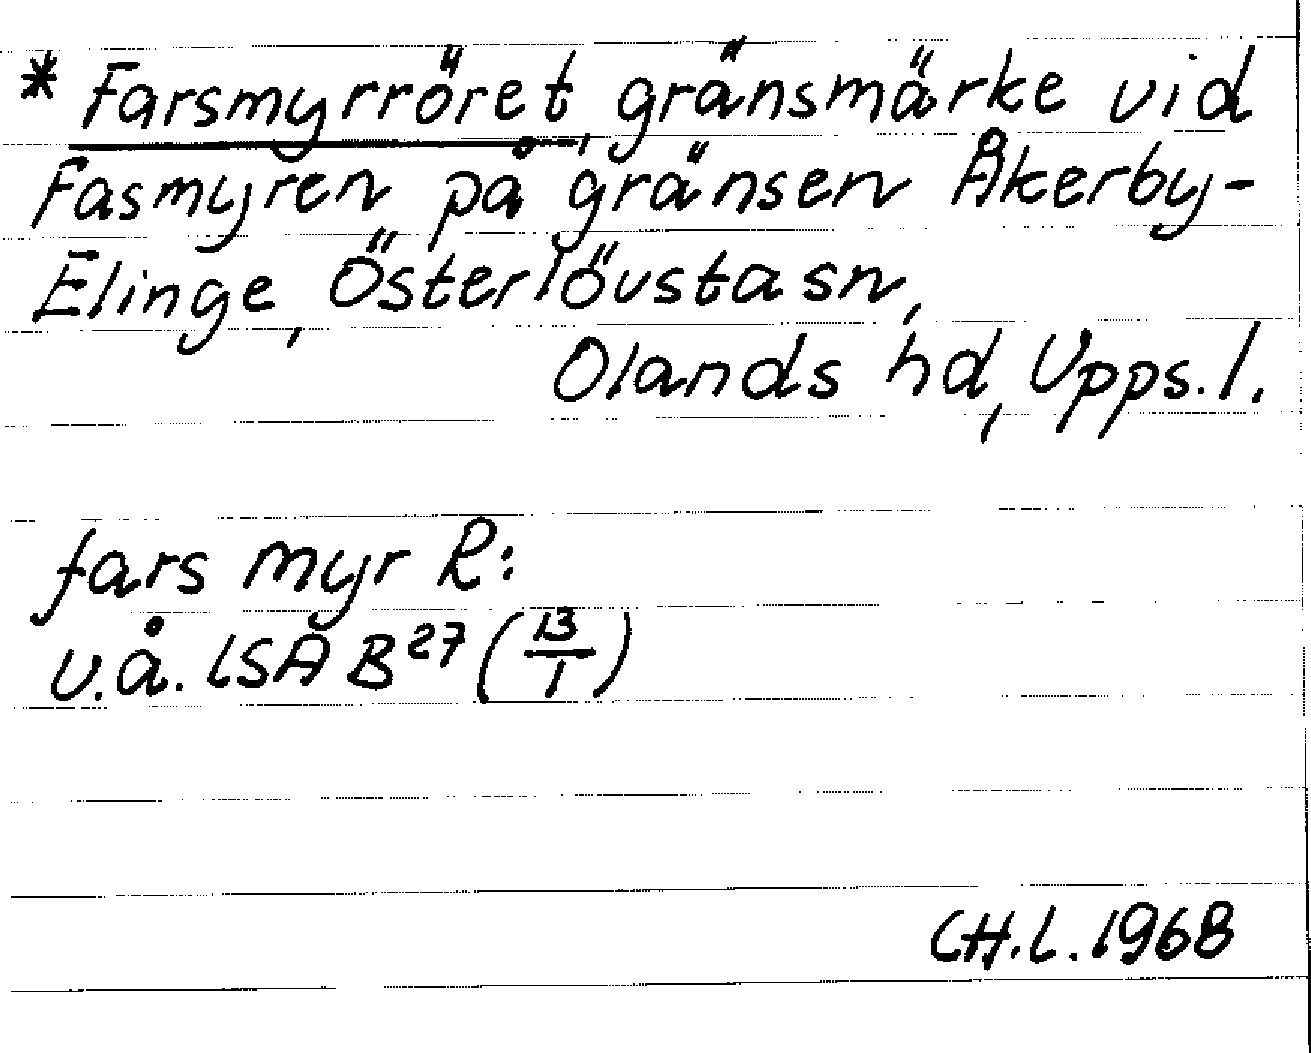 * Farsmyrröret, gränsmärke vid
Fasmyren på gränsen Åkerby-
Elinge, Österlövsta sn,
Olands hd, Upps. l.
fars myr R:
u.å. LSA B²⁷ (13/1)
CH.L. 1968